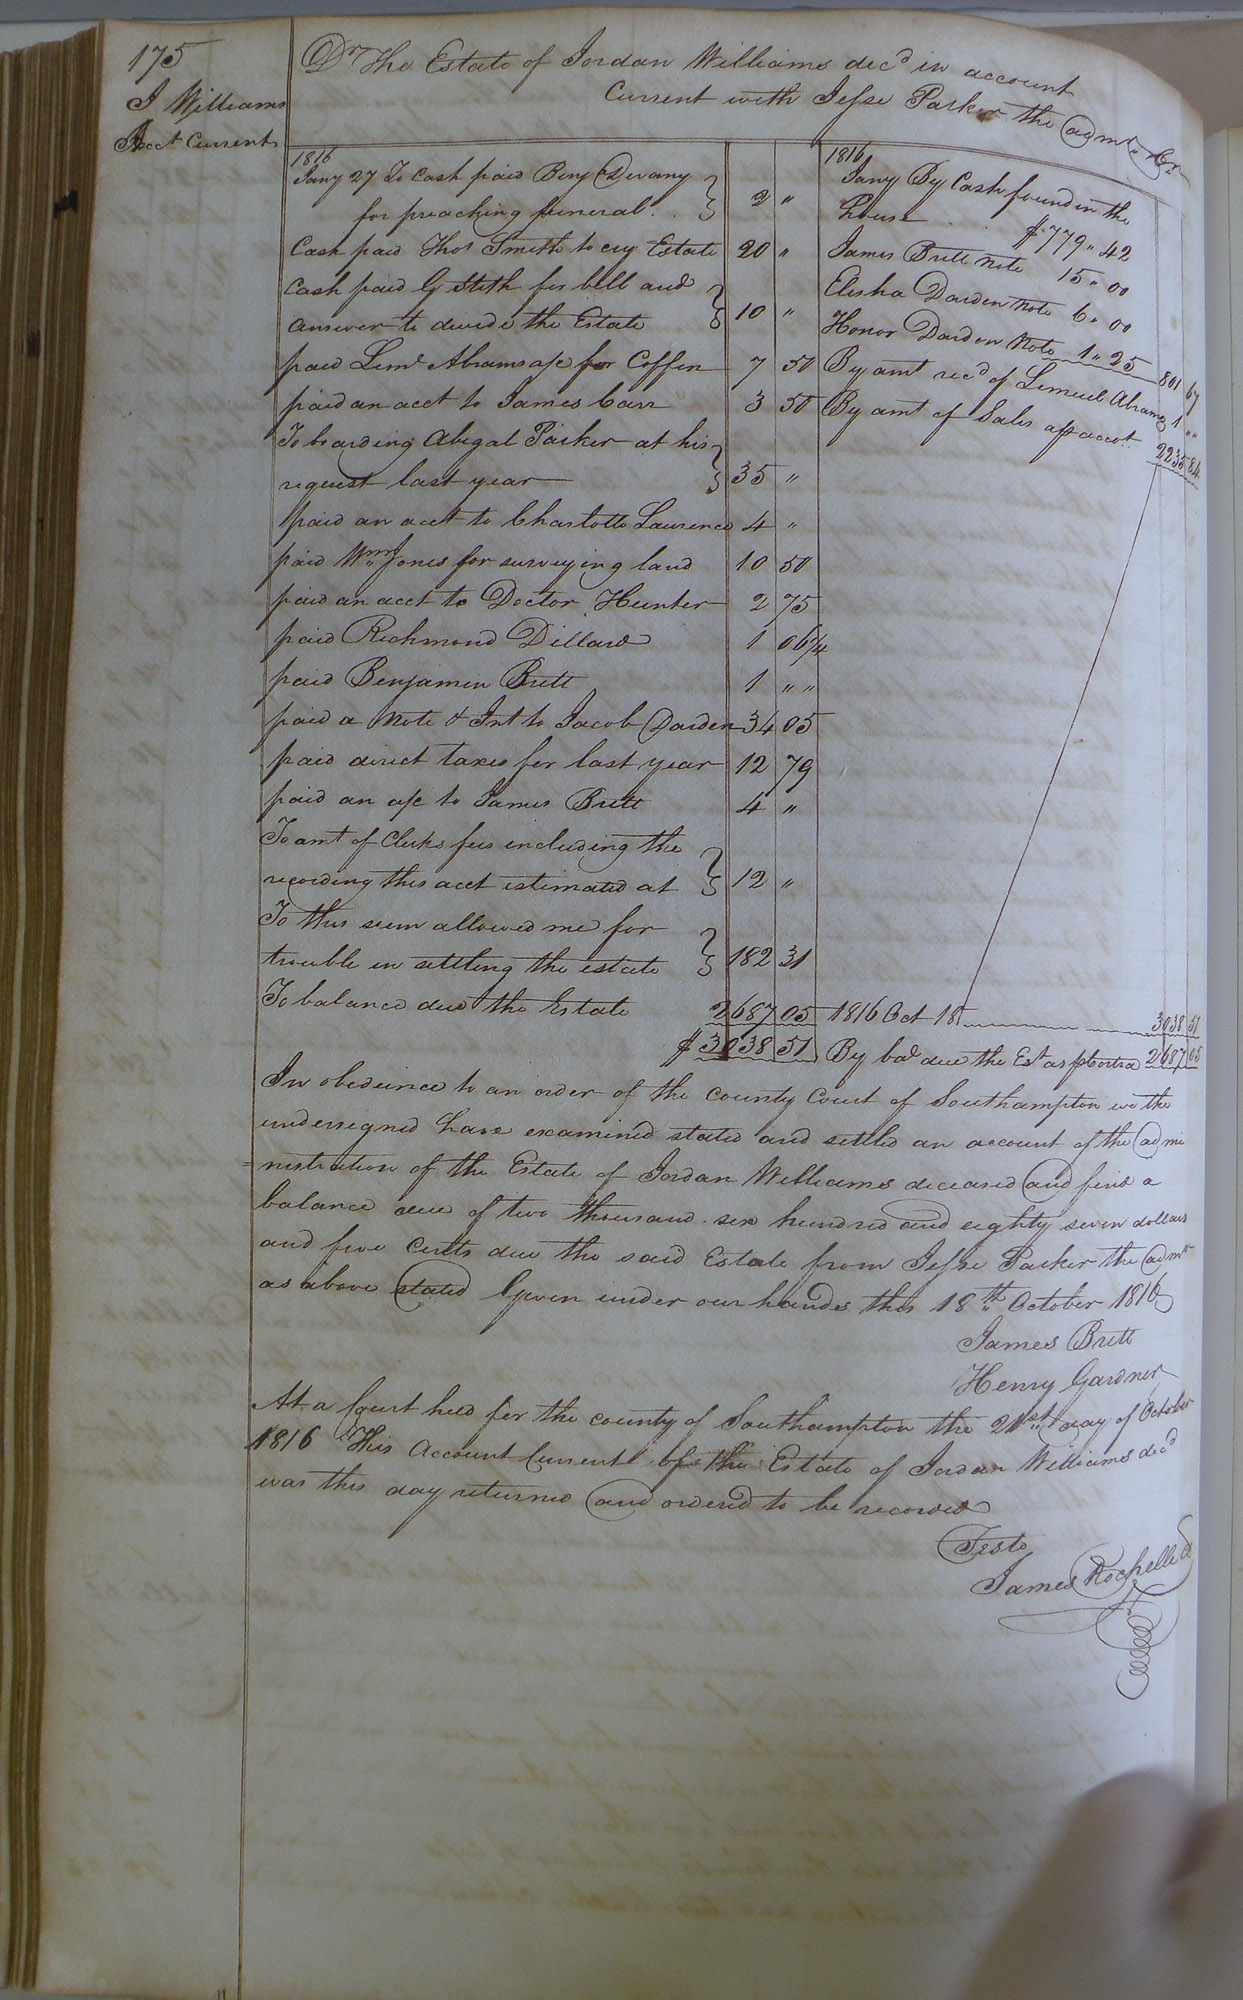 175
J Williams
Acct Current
Dr The Estate of Jordan Williams decd in account
Current with Jesse Parker the admr Cr
1816
Jany 27 To Cash paid Benj Devany
for preaching funeral . . 2 "
Cash paid Thos Smith to cry Estate 20 "
Cash paid G Stith for bill and
answer to divide the Estate 10 "
paid Leml Abrams a/c for Coffin 7 50
paid an acct to James Carr 3 50
To boarding Abigal Parker at his
request last year 35 "
paid an acct to Charlotte Laurence 4 "
paid Wm Jones for surveying land 10 50
paid an acct to Doctor Hunter 2 75
paid Richmond Dillard 1 06 1/4
paid Benjamin Britt 1 " "
paid a Note & Int to Jacob Darden 34 05
paid direct taxes for last year 12 79
paid an a/c to James Britt 4 "
To amt of Clerks fees including the
recording this acct estimated at 12 "
To this sum allowed me for
trouble in settling the estate 182 31
To balance due the Estate 2687 05
$ 3038 51
1816
Jany By Cash found in the
house . . $ 779 " 42
James Britt Note 15 " 00
Elisha Darden Note 6 " 00
Honor Darden Note 1 " 25 801 67
By amt recd of Lemuel Abrams 1 "
By amt of Sales as pr acct 2235 84
1816 Oct 18 3038 51
By bal due the Est as pr Contra 2687 05
In obedience to an order of the County Court of Southampton we the
undersigned have examined stated and settled an account of the admi
=nistration of the Estate of Jordan Williams deceased and find a
balance due of two thousand six hundred and eighty seven dollars
and five Cents due the said Estate from Jesse Parker the admr
as above stated Given under our hands this 18th October 1816
James Britt
Henry Gardner
At a Court held for the county of Southampton the 21st day of October
1816 This Account Current of the Estate of Jordan Williams decd
was this day returned and ordered to be recorded
Teste
James Rochelle Cl